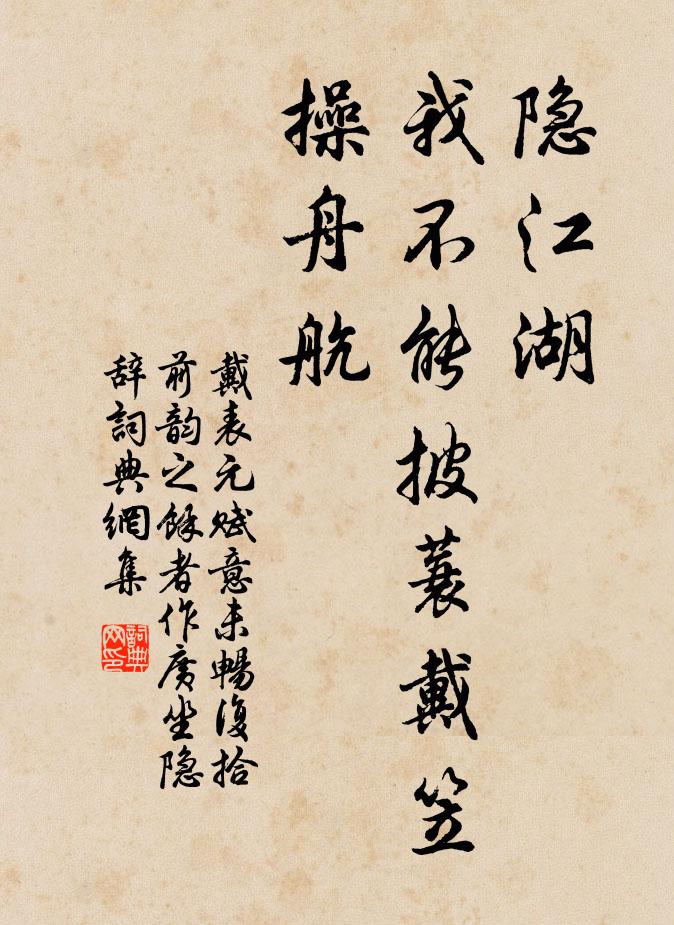 隐江湖
我不能披蓑戴笠
操舟航
戴表元赋意未畅復拾
前韵之馀者作廣坐隐
辞詞典網集
詞典網印